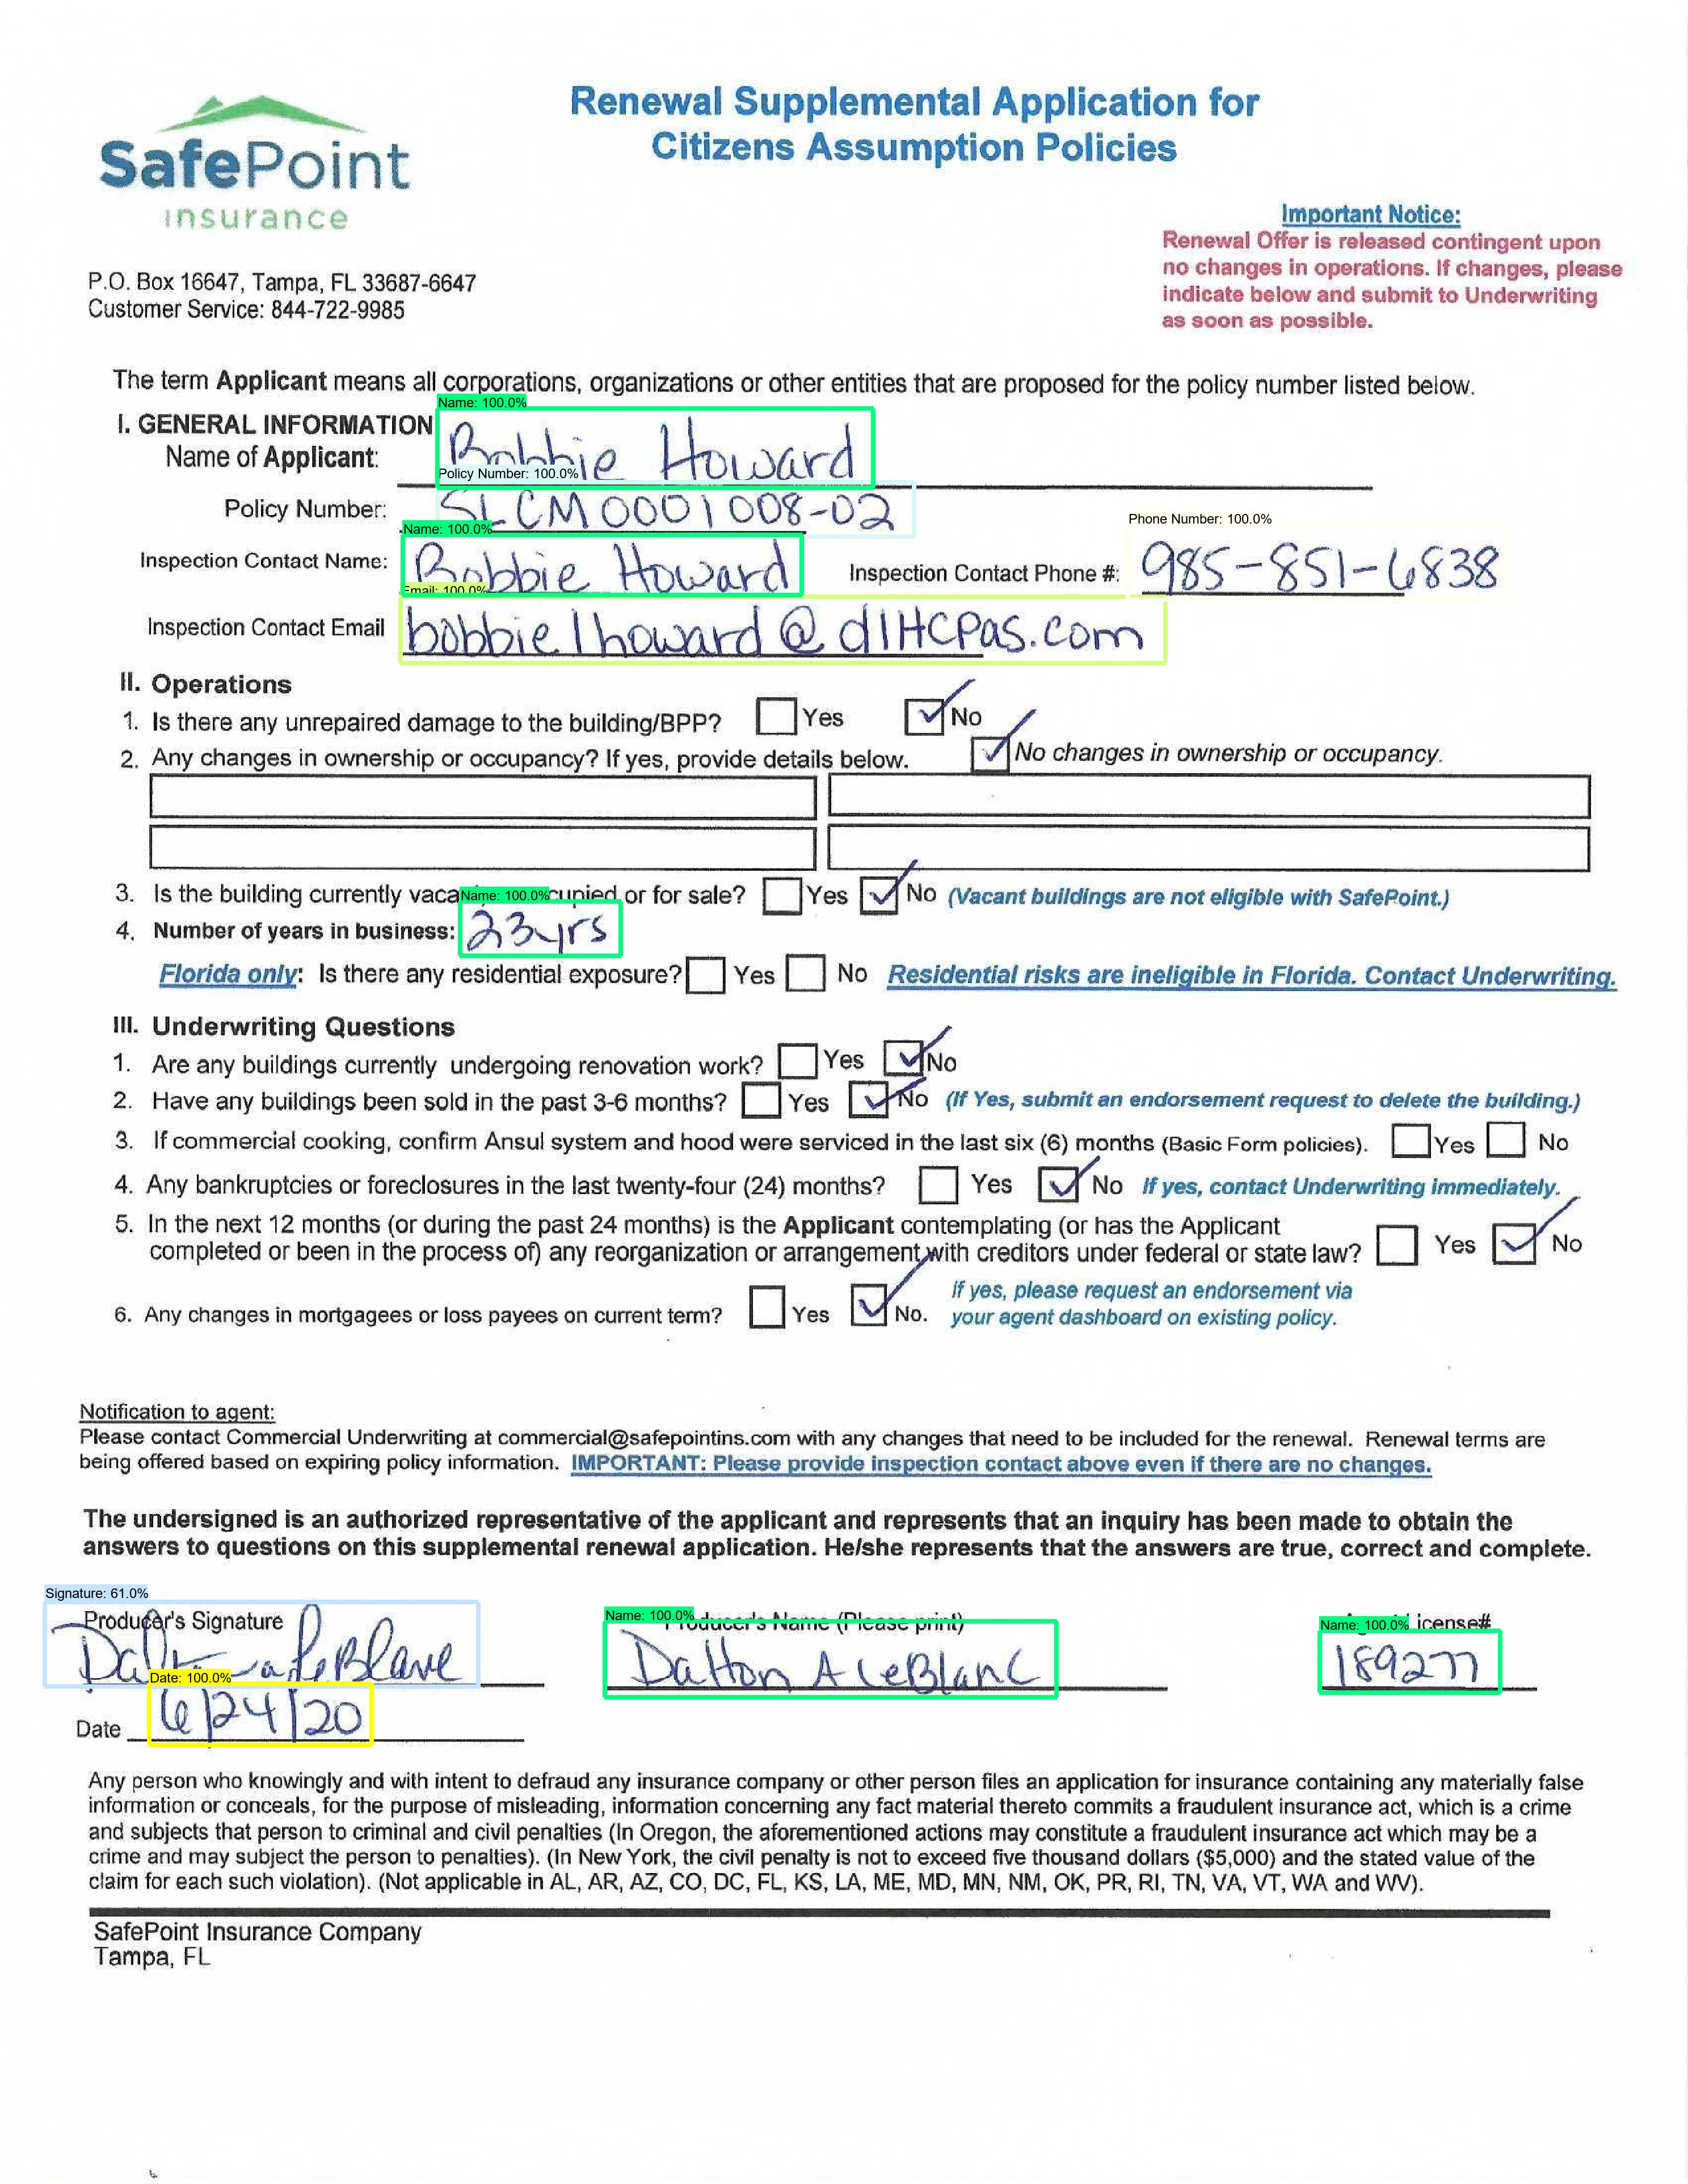 Renewal Supplemental Application for
Citizens Assumption Policies
SafePoint
insurance
Important Notice:
Renewal Offer is released contingent upon
no changes in operations. If changes, please
indicate below and submit to Underwriting
as soon as possible.
P.O. Box 16647, Tampa, FL 33687-6647
Customer Service: 844-722-9985
The term Applicant means all corporations, organizations or other entities that are proposed for the policy number listed below.
Name: 100.0%
I. GENERAL INFORMATION
Name of Applicant: Bobbie Howard
Policy Number: 100.0%
Policy Number: SLCM0001008-02
Name: 100.0%
Phone Number: 100.0%
Inspection Contact Name: Bobbie Howard Inspection Contact Phone #: 985-851-6838
Email: 100.0%
Inspection Contact Email bobbielhoward@dlHCPas.com
II. Operations
1. Is there any unrepaired damage to the building/BPP? Yes No
2. Any changes in ownership or occupancy? If yes, provide details below. No changes in ownership or occupancy.
3. Is the building currently or for sale? Yes No (Vacant buildings are not eligible with SafePoint.)
Name: 100.0%
4. Number of years in business: 23yrs
Florida only: Is there any residential exposure? Yes No Residential risks are ineligible in Florida. Contact Underwriting.
III. Underwriting Questions
1. Are any buildings currently undergoing renovation work? Yes No
2. Have any buildings been sold in the past 3-6 months? Yes No (If Yes, submit an endorsement request to delete the building.)
3. If commercial cooking, confirm Ansul system and hood were serviced in the last six (6) months (Basic Form policies). Yes No
4. Any bankruptcies or foreclosures in the last twenty-four (24) months? Yes No If yes, contact Underwriting immediately.
5. In the next 12 months (or during the past 24 months) is the Applicant contemplating (or has the Applicant
completed or been in the process of) any reorganization or arrangement with creditors under federal or state law? Yes No
6. Any changes in mortgagees or loss payees on current term? Yes No. If yes, please request an endorsement via
your agent dashboard on existing policy.
Notification to agent:
Please contact Commercial Underwriting at commercial@safepointins.com with any changes that need to be included for the renewal. Renewal terms are
being offered based on expiring policy information. IMPORTANT: Please provide inspection contact above even if there are no changes.
The undersigned is an authorized representative of the applicant and represents that an inquiry has been made to obtain the
answers to questions on this supplemental renewal application. He/she represents that the answers are true, correct and complete.
Signature: 61.0%
Name: 100.0%
Name: 100.0%
Producer's Signature Producer's Name (Please print) License#
Dalton A LeBlanc 189277
Date: 100.0%
Date 6/24/20
Any person who knowingly and with intent to defraud any insurance company or other person files an application for insurance containing any materially false
information or conceals, for the purpose of misleading, information concerning any fact material thereto commits a fraudulent insurance act, which is a crime
and subjects that person to criminal and civil penalties (In Oregon, the aforementioned actions may constitute a fraudulent insurance act which may be a
crime and may subject the person to penalties). (In New York, the civil penalty is not to exceed five thousand dollars ($5,000) and the stated value of the
claim for each such violation). (Not applicable in AL, AR, AZ, CO, DC, FL, KS, LA, ME, MD, MN, NM, OK, PR, RI, TN, VA, VT, WA and WV).
SafePoint Insurance Company
Tampa, FL